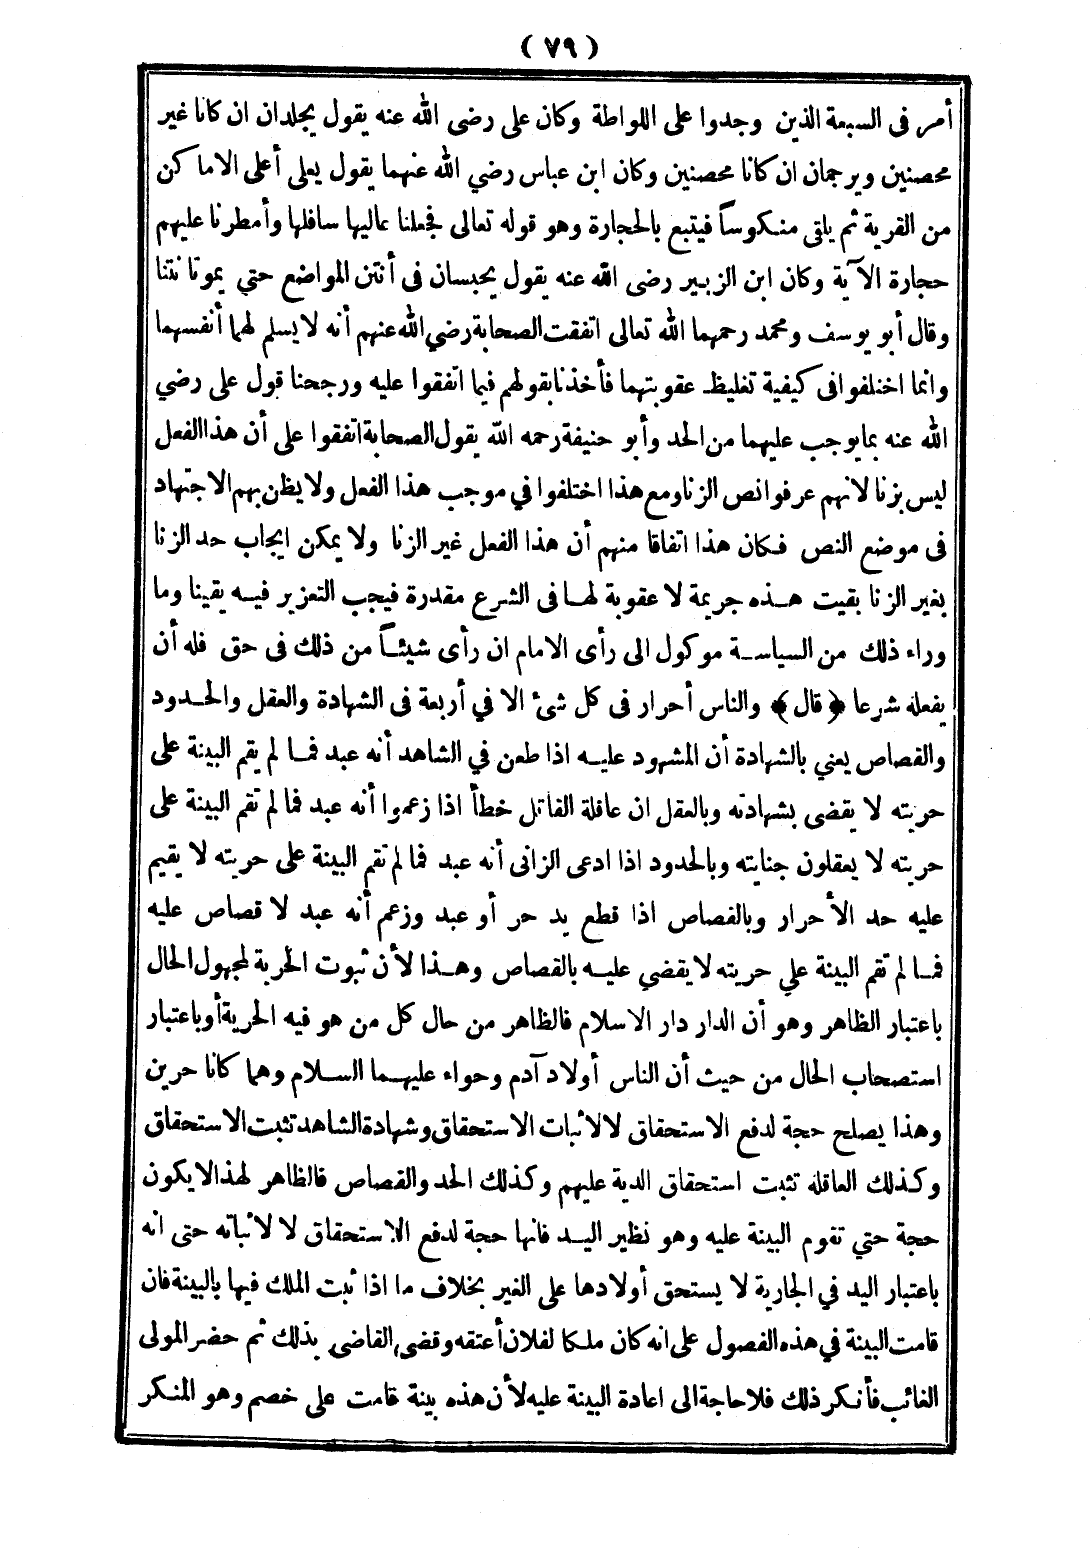 ( ٧٩ )
أمر فى السبعة الذين وجدوا على اللواطة وكان على رضى الله عنه يقول يجلدان ان كانا غير
محصنين ويرجمان ان كانا محصنين وكان ابن عباس رضي الله عنهما يقول يعلى أعلى الاماكن
من القرية ثم يلقى منكوساً فيتبع بالحجارة وهو قوله تعالى فجعلنا عاليها سافلها وأمطرنا عليهم
حجارة الآية وكان ابن الزبير رضى الله عنه يقول يحبسان فى أنتن المواضع حتي يموتا نتنا
وقال أبو يوسف ومحمد رحمهما الله تعالى اتفقت الصحابة رضي الله عنهم أنه لا يسلم لهما أنفسهما
وانما اختلفوا فى كيفية تغليظ عقوبتهما فأخذنا بقولهم فيما اتفقوا عليه ورجحنا قول على رضي
الله عنه بما يوجب عليهما من الحد وأبو حنيفة رحمه الله يقول الصحابة اتفقوا على أن هذا الفعل
ليس بزنا لانهم عرفوا نص الزنا ومع هذا اختلفوا في موجب هذا الفعل ولا يظن بهم الاجتهاد
فى موضع النص فكان هذا اتفاقا منهم أن هذا الفعل غير الزنا ولا يمكن ايجاب حد الزنا
بغير الزنا بقيت هذه جريمة لا عقوبة لها فى الشرع مقدرة فيجب التعزير فيه يقينا وما
وراء ذلك من السياسة موكول الى رأى الامام ان رأى شيئاً من ذلك فى حق فله أن
يفعله شرعا ﴿ قال ﴾ والناس أحرار فى كل شئ الا في أربعة فى الشهادة والعقل والحدود
والقصاص يعني بالشهادة أن المشهود عليه اذا طعن في الشاهد أنه عبد فما لم يقم البينة على
حريته لا يقضى بشهادته وبالعقل ان عاقلة القاتل خطأ اذا زعموا أنه عبد فما لم تقم البينة على
حريته لا يعقلون جنايته وبالحدود اذا ادعى الزانى أنه عبد فما لم تقم البينة على حريته لا يقيم
عليه حد الأحرار وبالقصاص اذا قطع يد حر أو عبد وزعم أنه عبد لا قصاص عليه
فما لم تقم البينة علي حريته لا يقضي عليه بالقصاص وهذا لأن ثبوت الحرية لمجهول الحال
باعتبار الظاهر وهو أن الدار دار الاسلام فالظاهر من حال كل من هو فيه الحرية أو باعتبار
استصحاب الحال من حيث أن الناس أولاد آدم وحواء عليهما السلام وهما كانا حرين
وهذا يصلح حجة لدفع الاستحقاق لا لاثبات الاستحقاق وشهادة الشاهد تثبت الاستحقاق
وكذلك العاقلة تثبت استحقاق الدية عليهم وكذلك الحد والقصاص فالظاهر لهذا لا يكون
حجة حتي تقوم البينة عليه وهو نظير اليد فانها حجة لدفع الاستحقاق لا لاثباته حتى انه
باعتبار اليد في الجارية لا يستحق أولادها على الغير بخلاف ما اذا ثبت الملك فيها بالبينة فان
قامت البينة في هذه الفصول على انه كان ملكا لفلان أعتقه وقضى القاضى بذلك ثم حضر المولى
الغائب فأنكر ذلك فلا حاجة الى اعادة البينة عليه لأن هذه بينة قامت على خصم وهو المنكر